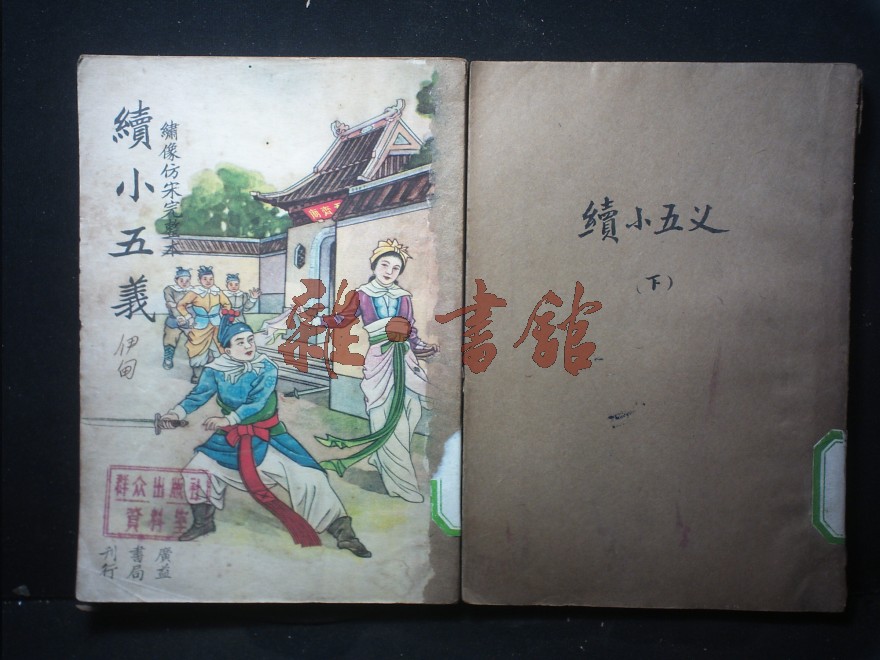 續小五義
繡像仿宋完整本
伊甸
群众出版社
資料室
廣益
書局
刊行
續小五义
(下)
雜·書館